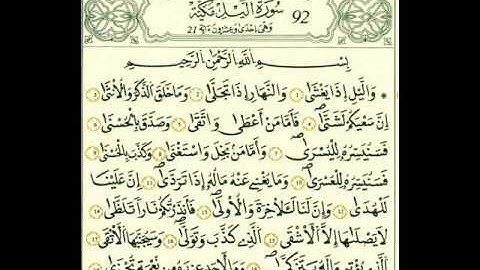 سُورَةُ الَّيْلِ مَكِّيَّةٌ
92
وَهْىَ إِحْدَى وَعِشْرُونَ ءَايَةً 21
بِسْمِ اللَّهِ الرَّحْمَنِ الرَّحِيمِ
وَالَّيْلِ إِذَا يَغْشَى ١ وَالنَّهَارِ إِذَا تَجَلَّى ٢ وَمَا خَلَقَ الذَّكَرَ وَالْأُنثَى ٣
إِنَّ سَعْيَكُمْ لَشَتَّى ٤ فَأَمَّا مَنْ أَعْطَى وَاتَّقَى ٥ وَصَدَّقَ بِالْحُسْنَى ٦
فَسَنُيَسِّرُهُ لِلْيُسْرَى ٧ وَأَمَّا مَنْ بَخِلَ وَاسْتَغْنَى ٨ وَكَذَّبَ بِالْحُسْنَى ٩
فَسَنُيَسِّرُهُ لِلْعُسْرَى ١٠ وَمَا يُغْنِي عَنْهُ مَالُهُ إِذَا تَرَدَّى ١١ إِنَّ عَلَيْنَا
لَلْهُدَى ١٢ وَإِنَّ لَنَا لَلْآخِرَةَ وَالْأُولَى ١٣ فَأَنذَرْتُكُمْ نَارًا تَلَظَّى ١٤
لَا يَصْلَاهَا إِلَّا الْأَشْقَى ١٥ الَّذِي كَذَّبَ وَتَوَلَّى ١٦ وَسَيُجَنَّبُهَا الْأَتْقَى ١٧
الَّذِي يُؤْتِي مَالَهُ يَتَزَكَّى ١٨ وَمَا لِأَحَدٍ عِندَهُ مِن نِّعْمَةٍ تُجْزَى